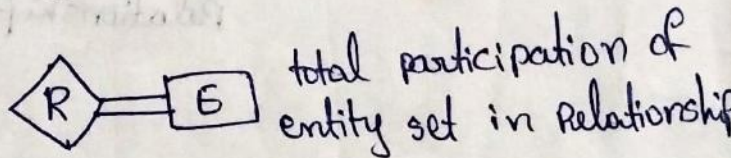 R E total participation of
entity set in Relationship